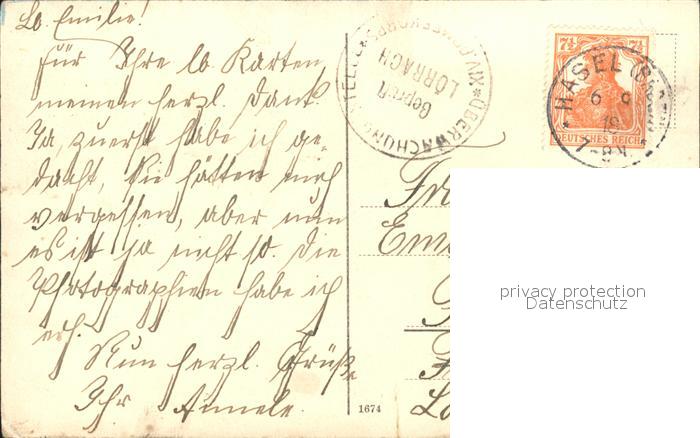 Lb. Emilie!
Für Ihre lb. Karten
meinen herzl. Dank.
Ja, zuerst habe ich ge-
dacht, Sie hätten mich
vergessen, aber nun
es ist ja nicht so. Die
Photographien habe ich
erh.
Nun herzl. Grüße
Ihr Annele.
ÜBERWACHUNGSSTELLE
XIV.
Geprüft
LÖRRACH
7½ 7½
DEUTSCHES REICH
HASEL
6 9
18
7-8N.
privacy protection
Datenschutz
1674